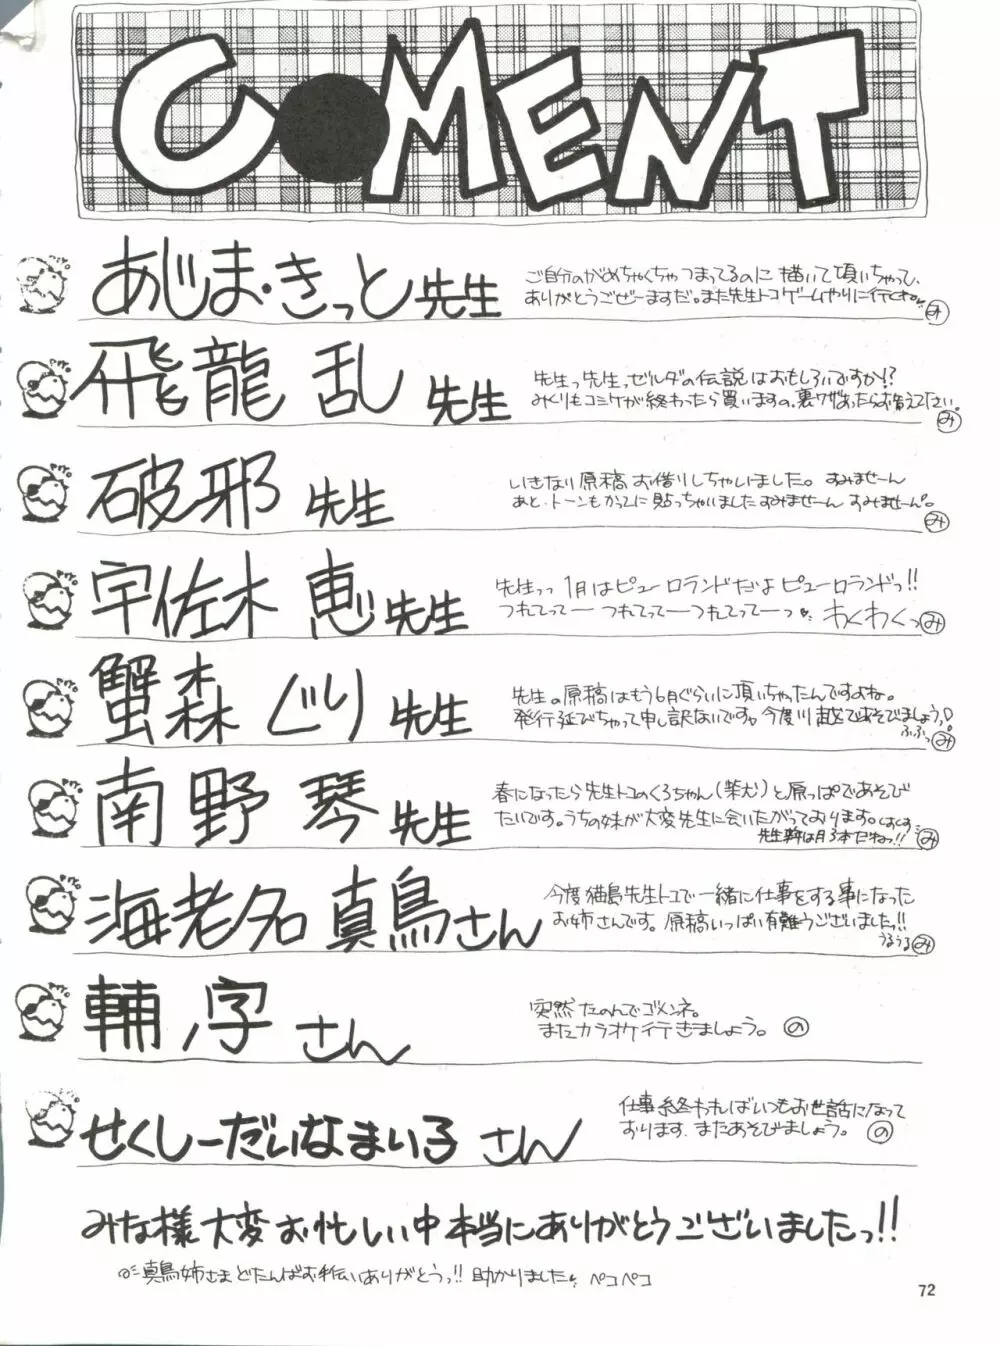 COMENT
PiYo
あじま・きっと先生
ご自分のがめちゃくちゃつまってるのに描いて頂いちゃって、
ありがとうごぜーますだ。また先生トコゲームやりに行く
み
PiYo
飛龍 乱 先生
先生っ先生っゼルダの伝説はおもしろいですか!?
みくりもコミケが終わったら買いますの、裏ワザあったらお教え下さい。
み
PiYo
破邪 先生
いきなり原稿お借りしちゃいました。すみませーん
あと、トーンもかってに貼っちゃいましたすみませーん すみませーん。
み
PiYo
宇佐木 恵先生
先生っっ 1月はピューロランドだよピューロランドっ!!
つれてってー つれてってーつれてってーっ わくわくっ
み
PiYo
蟹森 ぐり 先生
先生の原稿はもう6月ぐらいに頂いちゃったんですよね。
発行延びちゃって申し訳ないです。今度川越であそびましょうっ!
ふふっ
み
PiYo
南野 琴 先生
春になったら先生トコのくろちゃん(柴犬)と原っぱであそび
たいです。うちの妹が大変先生に会いたがっております。
先生 は月3本だねっ!!
み
PiYo
海老名 真鳥さん
今度猫島先生トコで一緒に仕事をする事になった
お姉さんです。原稿いっぱい有難うございましたっ!!
うるうる
み
PiYo
輔ノ字 さん
突然たのんでゴメンネ。
またカラオケ行きましょう。 の
PiYo
せくしーだいなまい子 さん
仕事終わればいつもお世話になって
おります、またあそびましょう。 の
みな様大変お忙しい中本当にありがとうございましたっ!!
真鳥姉さまどたんばお手伝いありがとうっ!! 助かりました ペコペコ
72